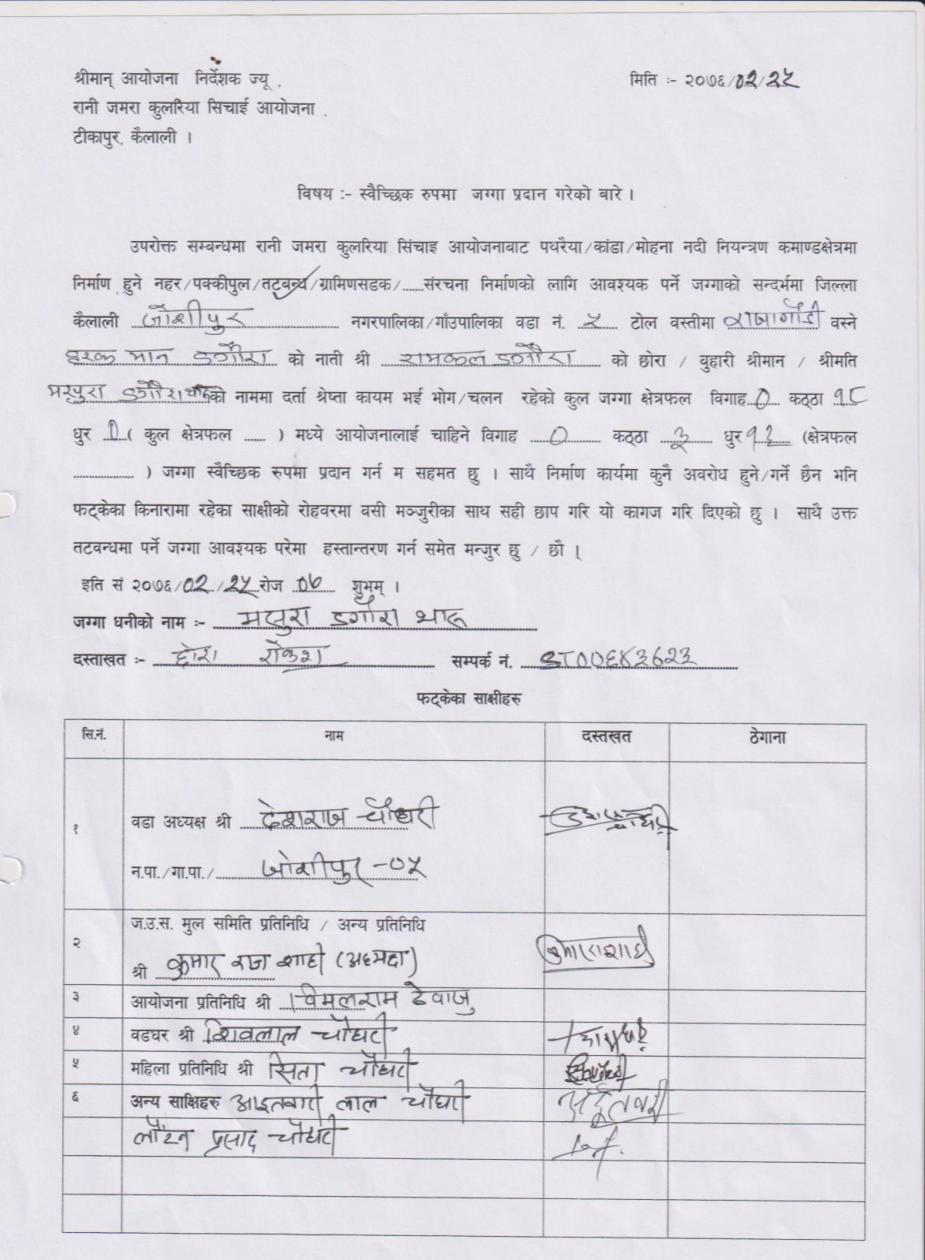 श्रीमान् आयोजना निर्देशक ज्यू,
मिति :- २०७६/०२/२५
रानी जमरा कुलरिया सिचाई आयोजना,
टीकापुर, कैलाली ।
विषय :- स्वैच्छिक रुपमा जग्गा प्रदान गरेको बारे ।
उपरोक्त सम्बन्धमा रानी जमरा कुलरिया सिंचाइ आयोजनावाट पथरैया/कांडा/मोहना नदी नियन्त्रण कमाण्डक्षेत्रमा
निर्माण हुने नहर/पक्कीपुल/तटवन्ध/ग्रामिणसडक/......संरचना निर्माणको लागि आवश्यक पर्ने जग्गाको सन्दर्भमा जिल्ला
कैलाली जोशीपुर नगरपालिका/गाँउपालिका वडा नं. ५ टोल वस्तीमा वस्ने
मान डगौरा को नाती श्री रामकल डगौरा को छोरा / बुहारी श्रीमान / श्रीमति
डगौरा को नाममा दर्ता श्रेष्ता कायम भई भोग/चलन रहेको कुल जग्गा क्षेत्रफल विगाह ० कठ्ठा १८
धुर ० ( कुल क्षेत्रफल ...... ) मध्ये आयोजनालाई चाहिने विगाह ० कठ्ठा ३ धुर १२ (क्षेत्रफल
................ ) जग्गा स्वैच्छिक रुपमा प्रदान गर्न म सहमत छु । साथै निर्माण कार्यमा कुनै अवरोध हुने/गर्ने छैन भनि
फट्केका किनारामा रहेका साक्षीको रोहवरमा वसी मञ्जुरीका साथ सही छाप गरि यो कागज गरि दिएको छु । साथै उक्त
तटवन्धमा पर्ने जग्गा आवश्यक परेमा हस्तान्तरण गर्न समेत मन्जुर छु / छौ ।
इति सं २०७६/०२/२५ रोज ०७ शुभम् ।
जग्गा धनीको नाम :- डगौरा थारू
दस्ताखत :- छोरा राकेश सम्पर्क नं.
फट्केका साक्षीहरु
सि.नं. नाम दस्तखत ठेगाना
१ वडा अध्यक्ष श्री देशराज चौधरी
न.पा./गा.पा./ जोशीपुर -०५
२ ज.उ.स. मुल समिति प्रतिनिधि / अन्य प्रतिनिधि
श्री कुमार राज शाही (अध्यक्ष)
३ आयोजना प्रतिनिधि श्री विमलराम देवाजु
४ वडघर श्री शिवलाल चौधरी
५ महिला प्रतिनिधि श्री सिता चौधरी
६ अन्य साक्षिहरु आइतवारी लाल चौधरी
प्रसाद चौधरी